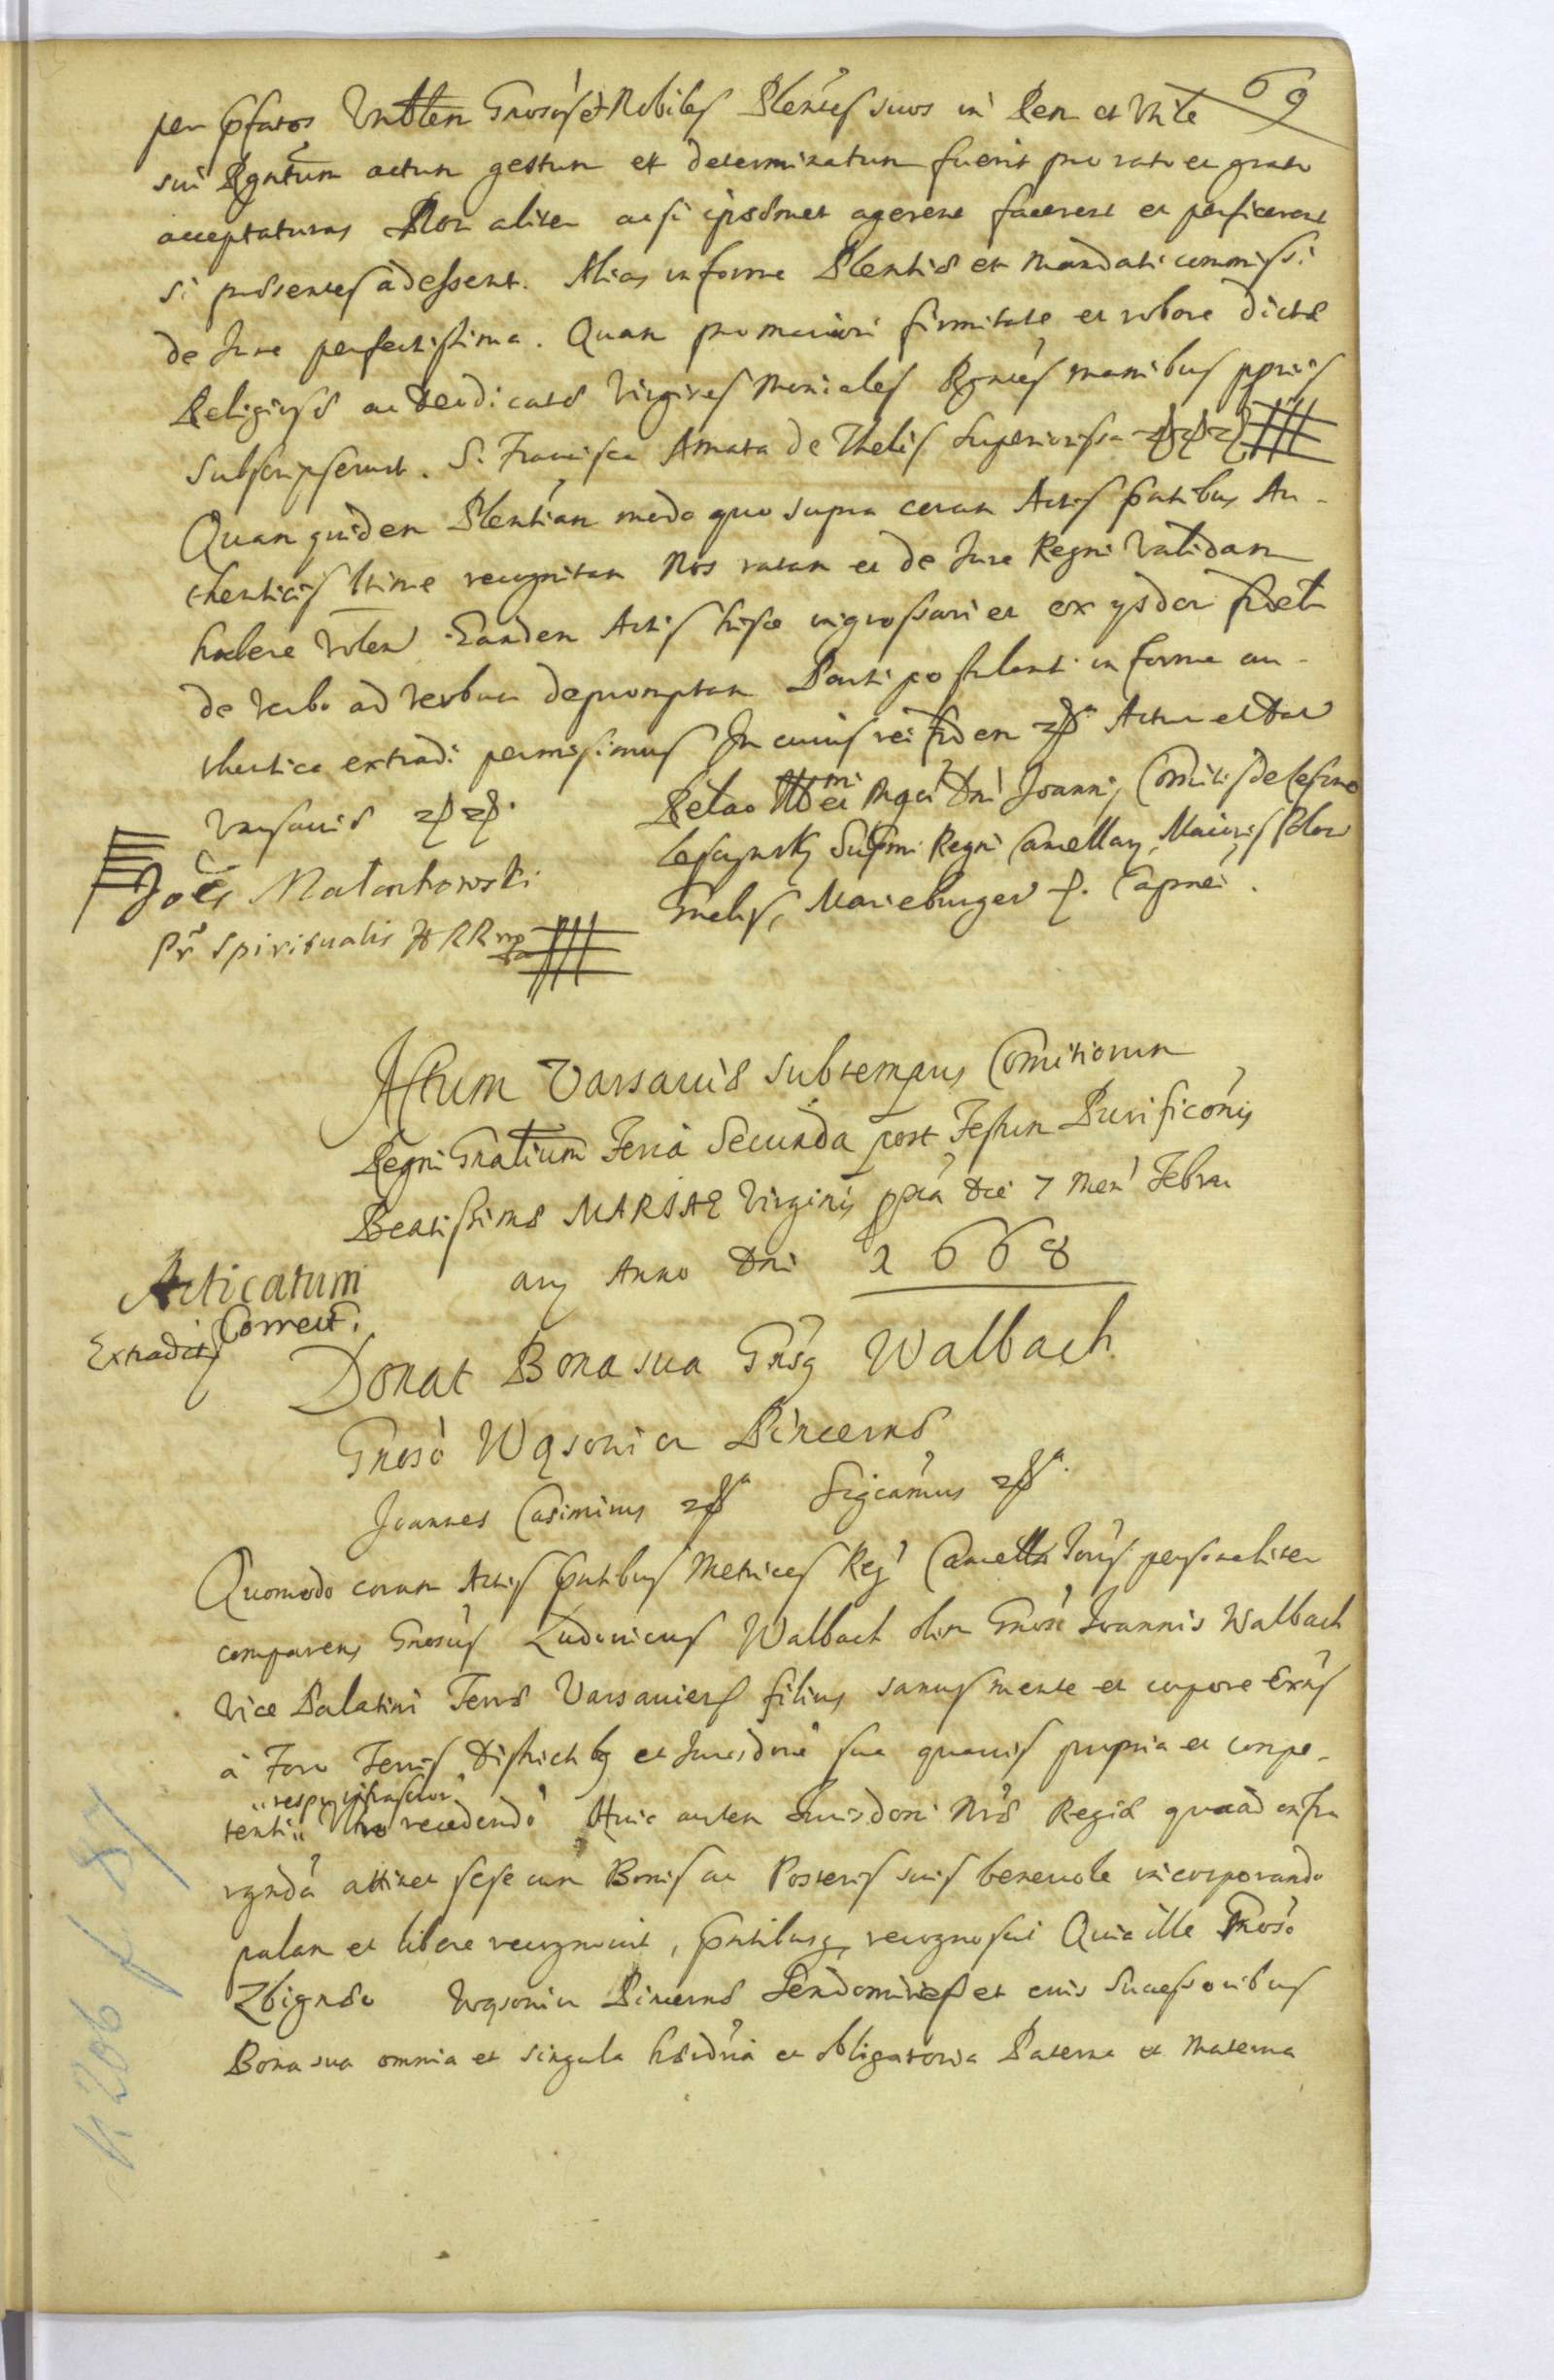 69
per pfatos Grosos et Nobiles Plentes suos in Rem et Utile
sui actum gestum et determinatum fuerit pro rato et grato
acceptaturas Non aliter ac si ipsaemet agerent facerent et perficerent
si praesentes adessent. Alias in forma Plentiae et Mandati commissi
de Jure perfectissima. Quam pro maiori firmitate et robore dictae
Religiosae ac Deodicatae Virgines Moniales Rgntes manibus ppriis
subscripserunt. S. Francisca Amata de Thelis Superiorissa
Quam quidem Plentiam modo quo supra coram Actis pntibus Au-
thenticis ltime recognitam Nos ratam et de Jure Regni Validam
habere volen Eandem Actis hisce ingrossari et ex ysdem
de verbo ad verbum depromptam Parti postulanti in forma au-
thentica extradi permisimus In cuius rei fidem Actum et Dat
Varsaviae
Joes Małachowski
Pr Spiritualis RR mp
Relao Mgci Dni Joannis Comitis de Leszno
Leszczynsky Supmi Regni Cancellary, Maioris Polon
Gnelis, Marieburgen Capnei.
Actum Varsaviae sub tempus Comitiorum
Regni Gnalium Feria Secunda post Festum Purificonis
Beatissimae MARIAE Virginis ppia die 7 Men Febru
ary Anno Dni 1668
Acticatum
Correct.
Extradit
Donat Bona sua Gnsg Walbach
Gnoso Wąsowicz Pincernae
Joannes Casimirus Sigcamus
Quomodo coram Actis pntibus Metrices Reg Cancella personaliter
comparens Gnosus Ludovicus Walbach olim Gnosi Joannis Walbach
Vice Palatini Terrae Varsavien filius sanus mente et corpore Exns
à Foro Terris Districtbq et Jurisdone sua quavis propria et compe-
respu infrascrior
tenti recedendo Huic autem Jurisdoni Nrae Regiae quoad infra
rgnda attinet sese cum Bonis ac Posteris suis benevole incorporando
palam et libere recognovit, pntibusq recognoscit Quia ille Gnoso
Zbignaeo Wąsowicz Pincernae Sendomirien et eius Successoribus
Bona sua omnia et singula haeridria et obligatoria Paterna et Materna
K 206 f 87